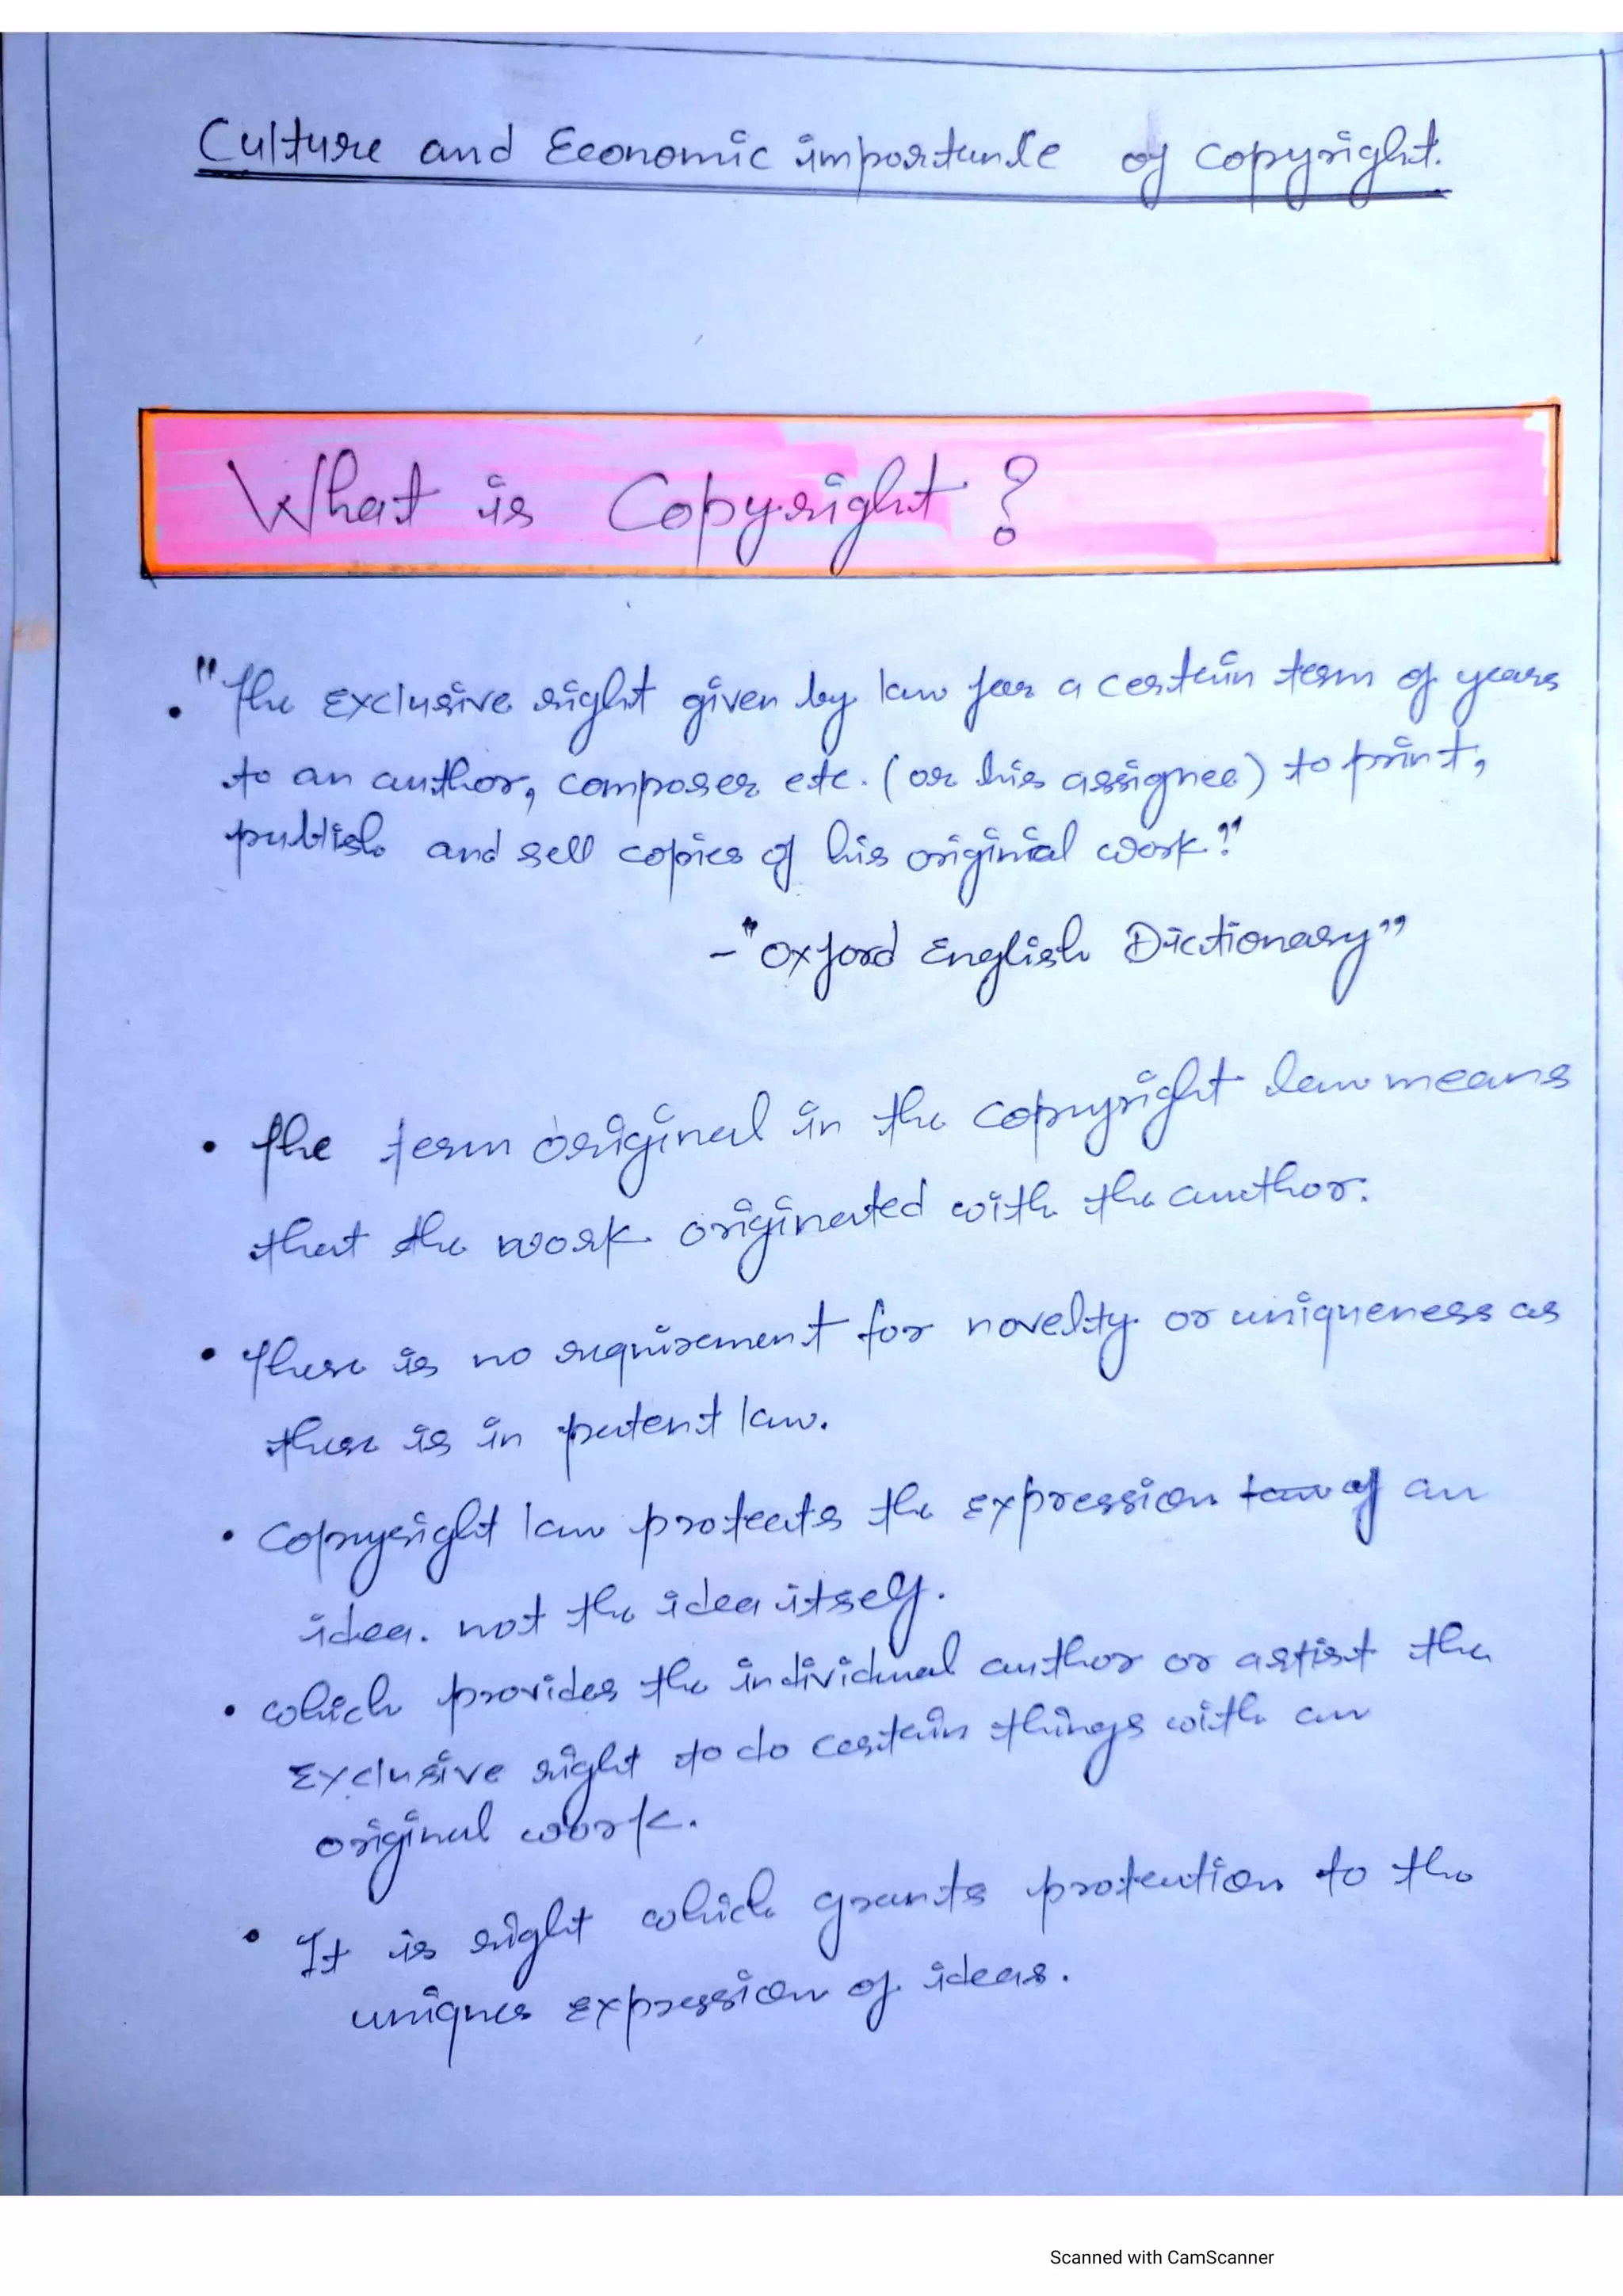 Culture and Economic importance of copyright.
What is Copyright ?
"The exclusive right given by law for a certain term of years
to an author, composer etc. (or his assignee) to print,
publish and sell copies of his original work."
- "Oxford English Dictionary"
• The term original in the copyright law means
that the work originated with the author.
• There is no requirement for novelty or uniqueness as
there is in patent law.
• Copyright law protects the expression of an
idea. not the idea itself.
• which provides the individual author or artist the
exclusive right to do certain things with an
original work.
• It is right which grants protection to the
uniques expression of ideas.
Scanned with CamScanner